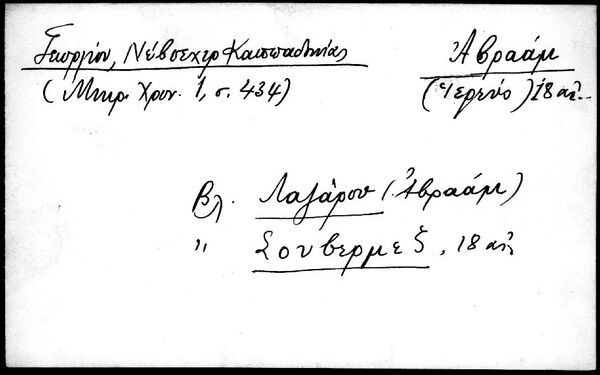 Γεωργίου, Νέβσεχιρ Καππαδοκίας
Ἀβραάμ
(Μικρ. Χρον. 1, σ. 434)
(Ἱερεύς) 18 αἰ.
Βλ. Λαζάρου (Ἀβραάμ)
" Σουβερμέζ, 18 αἰ.